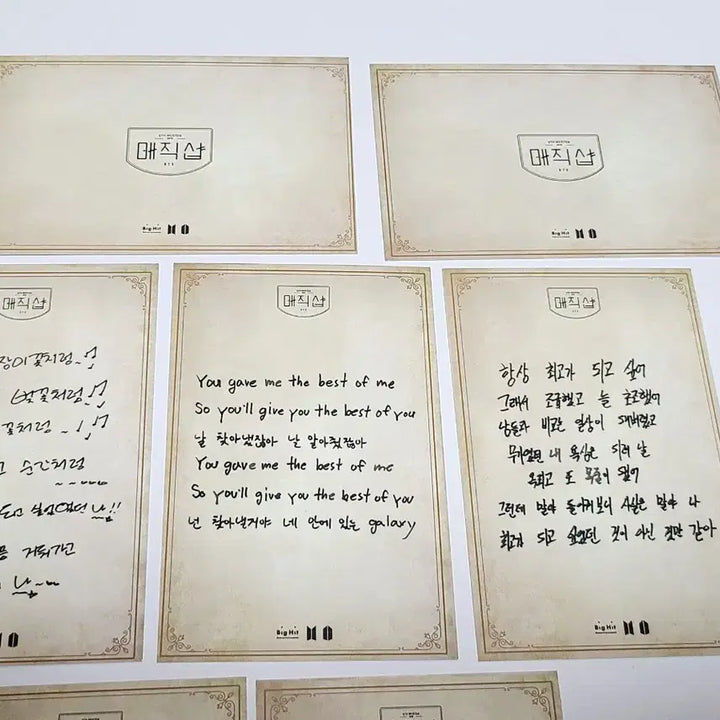 매직샵
BTS
Big Hit
매직샵
BTS
Big Hit
매직샵
장미꽃처럼~
벚꽃처럼
꽃처럼~
순간처럼
매직샵
BTS
You gave me the best of me
So you'll give you the best of you
날 찾아냈잖아 날 알아줬잖아
You gave me the best of me
So you'll give you the best of you
넌 찾아낼거야 네 안에 있는 galaxy
Big Hit
매직샵
BTS
항상 최고가 되고 싶어
그래서 조급했고 늘 초조했어
남들과 비교는 일상이 돼버렸고
무기였던 내 욕심은 되려 날
옥죄고 또 목줄이 됐어
그런데 말야 돌이켜보니 사실은 말야 나
최고가 되고 싶었던 것이 아닌 것만 같아
Big Hit